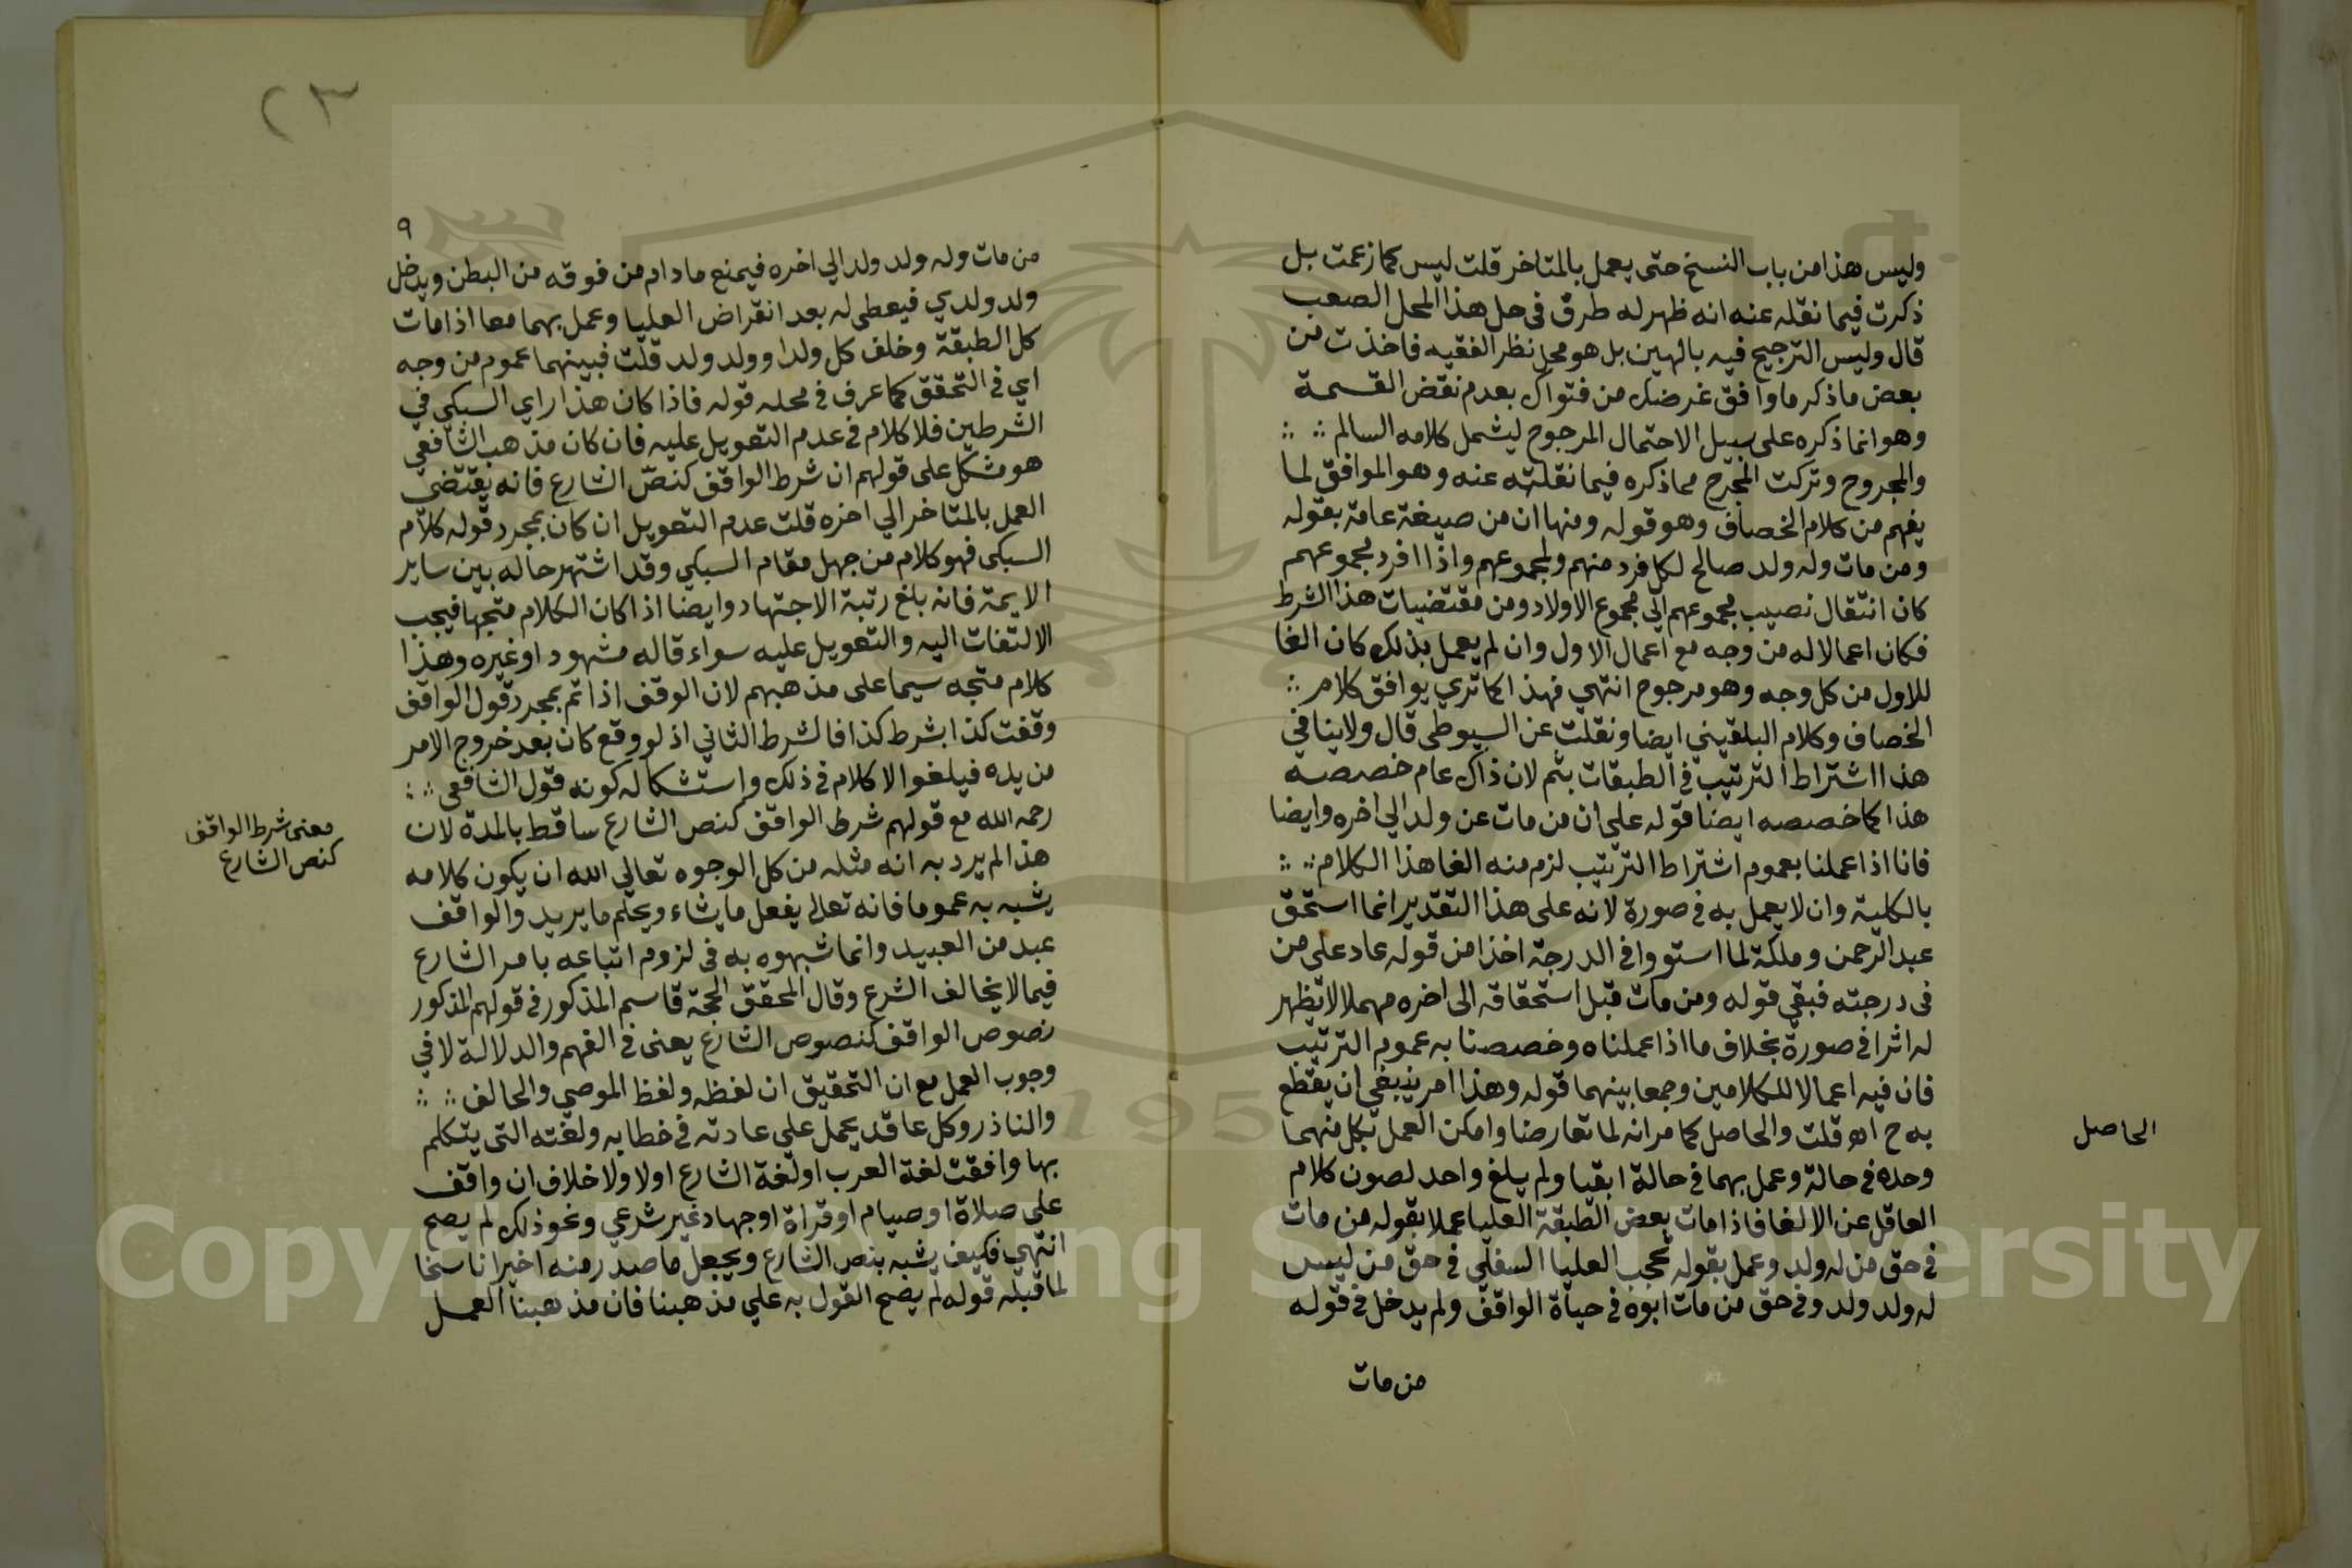 وليس هذا من باب النسخ حتى يعمل بالمتاخر قلت ليس كما زعمت بل
ذكرت فيما نقله عنه انه ظهر له طرق في حل هذا المحل الصعب
قال وليس الترجيح فيه بالهين بل هو محل نظر الفقيه فاخذت من
بعض ما ذكر ما وافق غرضك من فتواك بعدم نقض القسمة
وهو انما ذكره على سبيل الاحتمال المرجوح ليشمل كلامه السالم
والمجروح وتركت المجرح مما ذكره فيما نقلته عنه وهو الموافق لما
يفهم من كلام الخصاف وهو قوله ومنها ان من صيغة عامة بقوله
ومن مات وله ولد صالح لكل فرد منهم ولمجموعهم واذا افرد لمجموعهم
كان انتقال نصيب مجموعهم الي مجموع الاولاد ومن مقتضيات هذا الشرط
فكان اعمالا له من وجه مع اعمال الاول وان لم يعمل بذلك كان الغا
للاول من كل وجه وهو مرجوح انتهي فهذا كما تري يوافق كلام
الخصاف وكلام البلقيني ايضا ونقلت عن السيوطي قال ولا ينافي
هذا اشتراط الترتيب في الطبقات بثم لان ذاك عام خصصه
هذا كما خصصه ايضا قوله علي ان من مات عن ولد الي اخره وايضا
فانا اذا عملنا بعموم اشتراط الترتيب لزم منه الغا هذا الكلام
بالكلية وان لا يعمل به في صورة لانه على هذا التقدير انما استحق
عبد الرحمن وملكة لما استووا في الدرجة اخذا من قوله عاد علي من
في درجته فبقي قوله ومن مات قبل استحقاقه الى اخره مهملا لا يظهر
له اثر في صورة بخلاف ما اذا عملناه وخصصنا به عموم الترتيب
فان فيه اعمالا للكلامين وجمعا بينهما قوله وهذا امر ينبغي ان يقطع
به ح اه قلت والحاصل كما مر انه لما تعارضا وامكن العمل بكل منهما
وحده في حالة وعمل بهما في حالة ابقيا ولم يلغ واحد لصون كلام
العاقل عن الالغا فاذا مات بعض الطبقة العليا عملا بقوله من مات
في حق من له ولد وعمل بقوله تحجب العليا السفلي في حق من ليس
له ولد ولد وفي حق من مات ابوه في حياة الواقف ولم يدخل في قوله
من مات
الحاصل
٢٣
٩
من مات وله ولد ولد الي اخره فيمنع ما دام من فوقه من البطن ويدخل
ولد ولدي فيعطي له بعد انقراض العليا وعمل بهما معا اذا مات
كل الطبقة وخلف كل ولدا وولد ولد قلت فبينهما عموم من وجه
اي في التحقق كما عرف في محله قوله فاذا كان هذا راي السبكي في
الشرطين فلا كلام في عدم التعويل عليه فان كان مذهب الشافعي
هو مشكل على قولهم ان شرط الواقف كنص الشارع فانه يقتضي
العمل بالمتاخر الي اخره قلت عدم التعويل ان كان بمجرد قوله كلام
السبكي فهو كلام من جهل مقام السبكي وقد اشتهر حاله بين ساير
الايمة فانه بلغ رتبة الاجتهاد وايضا اذا كان الكلام متجها فيجب
الالتفات اليه والتعويل عليه سواء قاله مشهود او غيره وهذا
كلام متجه سيما على مذهبهم لان الوقف اذا تم بمجرد قول الواقف
وقفت كذا بشرط كذا فالشرط الثاني اذ لو وقع كان بعد خروج الامر
من يده فيلغوا لا كلام في ذلك واستشكاله كونه قول الشافعي
رحمه الله مع قولهم شرط الواقف كنص الشارع ساقط بالمدة لان
هذا لم يرد به انه مثله من كل الوجوه تعالي الله ان يكون كلامه
يشبه به عموما فانه تعالى يفعل ما يشاء ويحكم ما يريد والواقف
عبد من العبيد وانما شبهوه به في لزوم اتباعه بامر الشارع
فيما لا يخالف الشرع وقال المحقق الحجة قاسم المذكور في قولهم المذكور
نصوص الواقف كنصوص الشارع يعني في الفهم والدلالة لا في
وجوب العمل مع ان التحقيق ان لفظه ولفظ الموصي والحالف
والناذر وكل عاقد يحمل علي عادته في خطابه ولغته التي يتكلم
بها وافقت لغة العرب او لغة الشارع اولا ولا خلاف ان واقف
على صلاة او صيام او قراة او جهاد غير شرعي ونحو ذلك لم يصح
انتهي فكيف يشبه بنص الشارع ويجعل ما صدر منه اخيرا ناسخا
لما قبله قوله لم يصح القول به علي مذهبنا فان مذهبنا العمل
معنى شرط الواقف
كنص الشارع
1957
Copyright © King Saud University